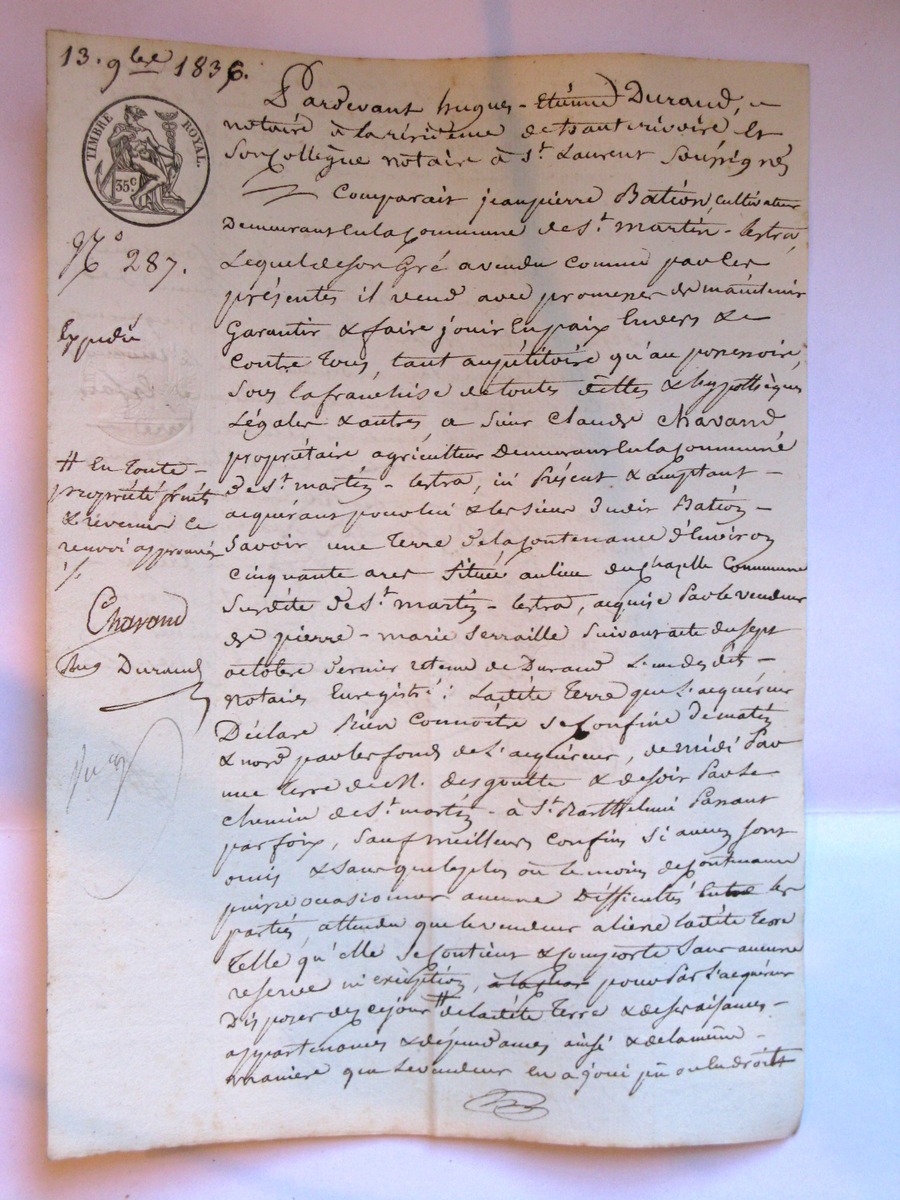 13. 9bre 1836.
TIMBRE ROYAL.
35 c.
No 287.
Expédié
# en toute -
propriété fruits
& revenus ce
renvoi approuvé
Chavand
Hug Durand
Pardevant hugues - Etienne Durand,
notaire à la résidence de hauterivoire et
Son Collègue notaire à St. Laurent Soussignés
Comparait jeanpierre Bation, cultivateur
Demeurant en la Commune de St. martin - lestra,
Lequel de son Gré a vendu comme par les
présentes il vend avec promesse de maintenir
Garantir & faire jouir en paix Envers &
Contre tous, tant au pétitoire qu'au possessoire,
Sous la franchise de toutes dettes & hypothèques
Légales & autres a Sieur Claude Chavand
propriétaire agriculteur Demeurant en la Commune
de St. martin - lestra, ici Présent & acceptant -
acquérant pour lui & les siens dudit Bation -
Savoir une Terre de la Contenance d'Environ
Cinquante ares Située au lieu du Chapelle Commune
Susdite de St. martin - lestra, acquise Par le vendeur
de pierre - marie Serraille Suivant acte du sept
octobre dernier retenu de Durand L'un des dits -
notaires Enregistré: Ladite Terre que L'acquéreur
Déclare bien Connoitre se Confine de matin
& nord par les fonds de L'acquéreur, de midi Par
une terre de M. desgoutte & de soir Par le
chemin de St. martin - à St. Barthelmi Passant
par foix, Sauf meilleurs Confins Si aucuns sont
omis & sans que le plus ou le moins de Contenance
puisse occasionner aucune Difficultés entre les
parties, attendu que le vendeur aliene ladite Terre
Telle qu'elle se Contient & Comporte Sans aucune
reserve ni exception, pour Par L'acquéreur
Disposer dez ce jour # de ladite Terre & de ses aisances -
appartenances & dépendances ainsi & de la même -
maniere que le vendeur en a joui pu ou du droit